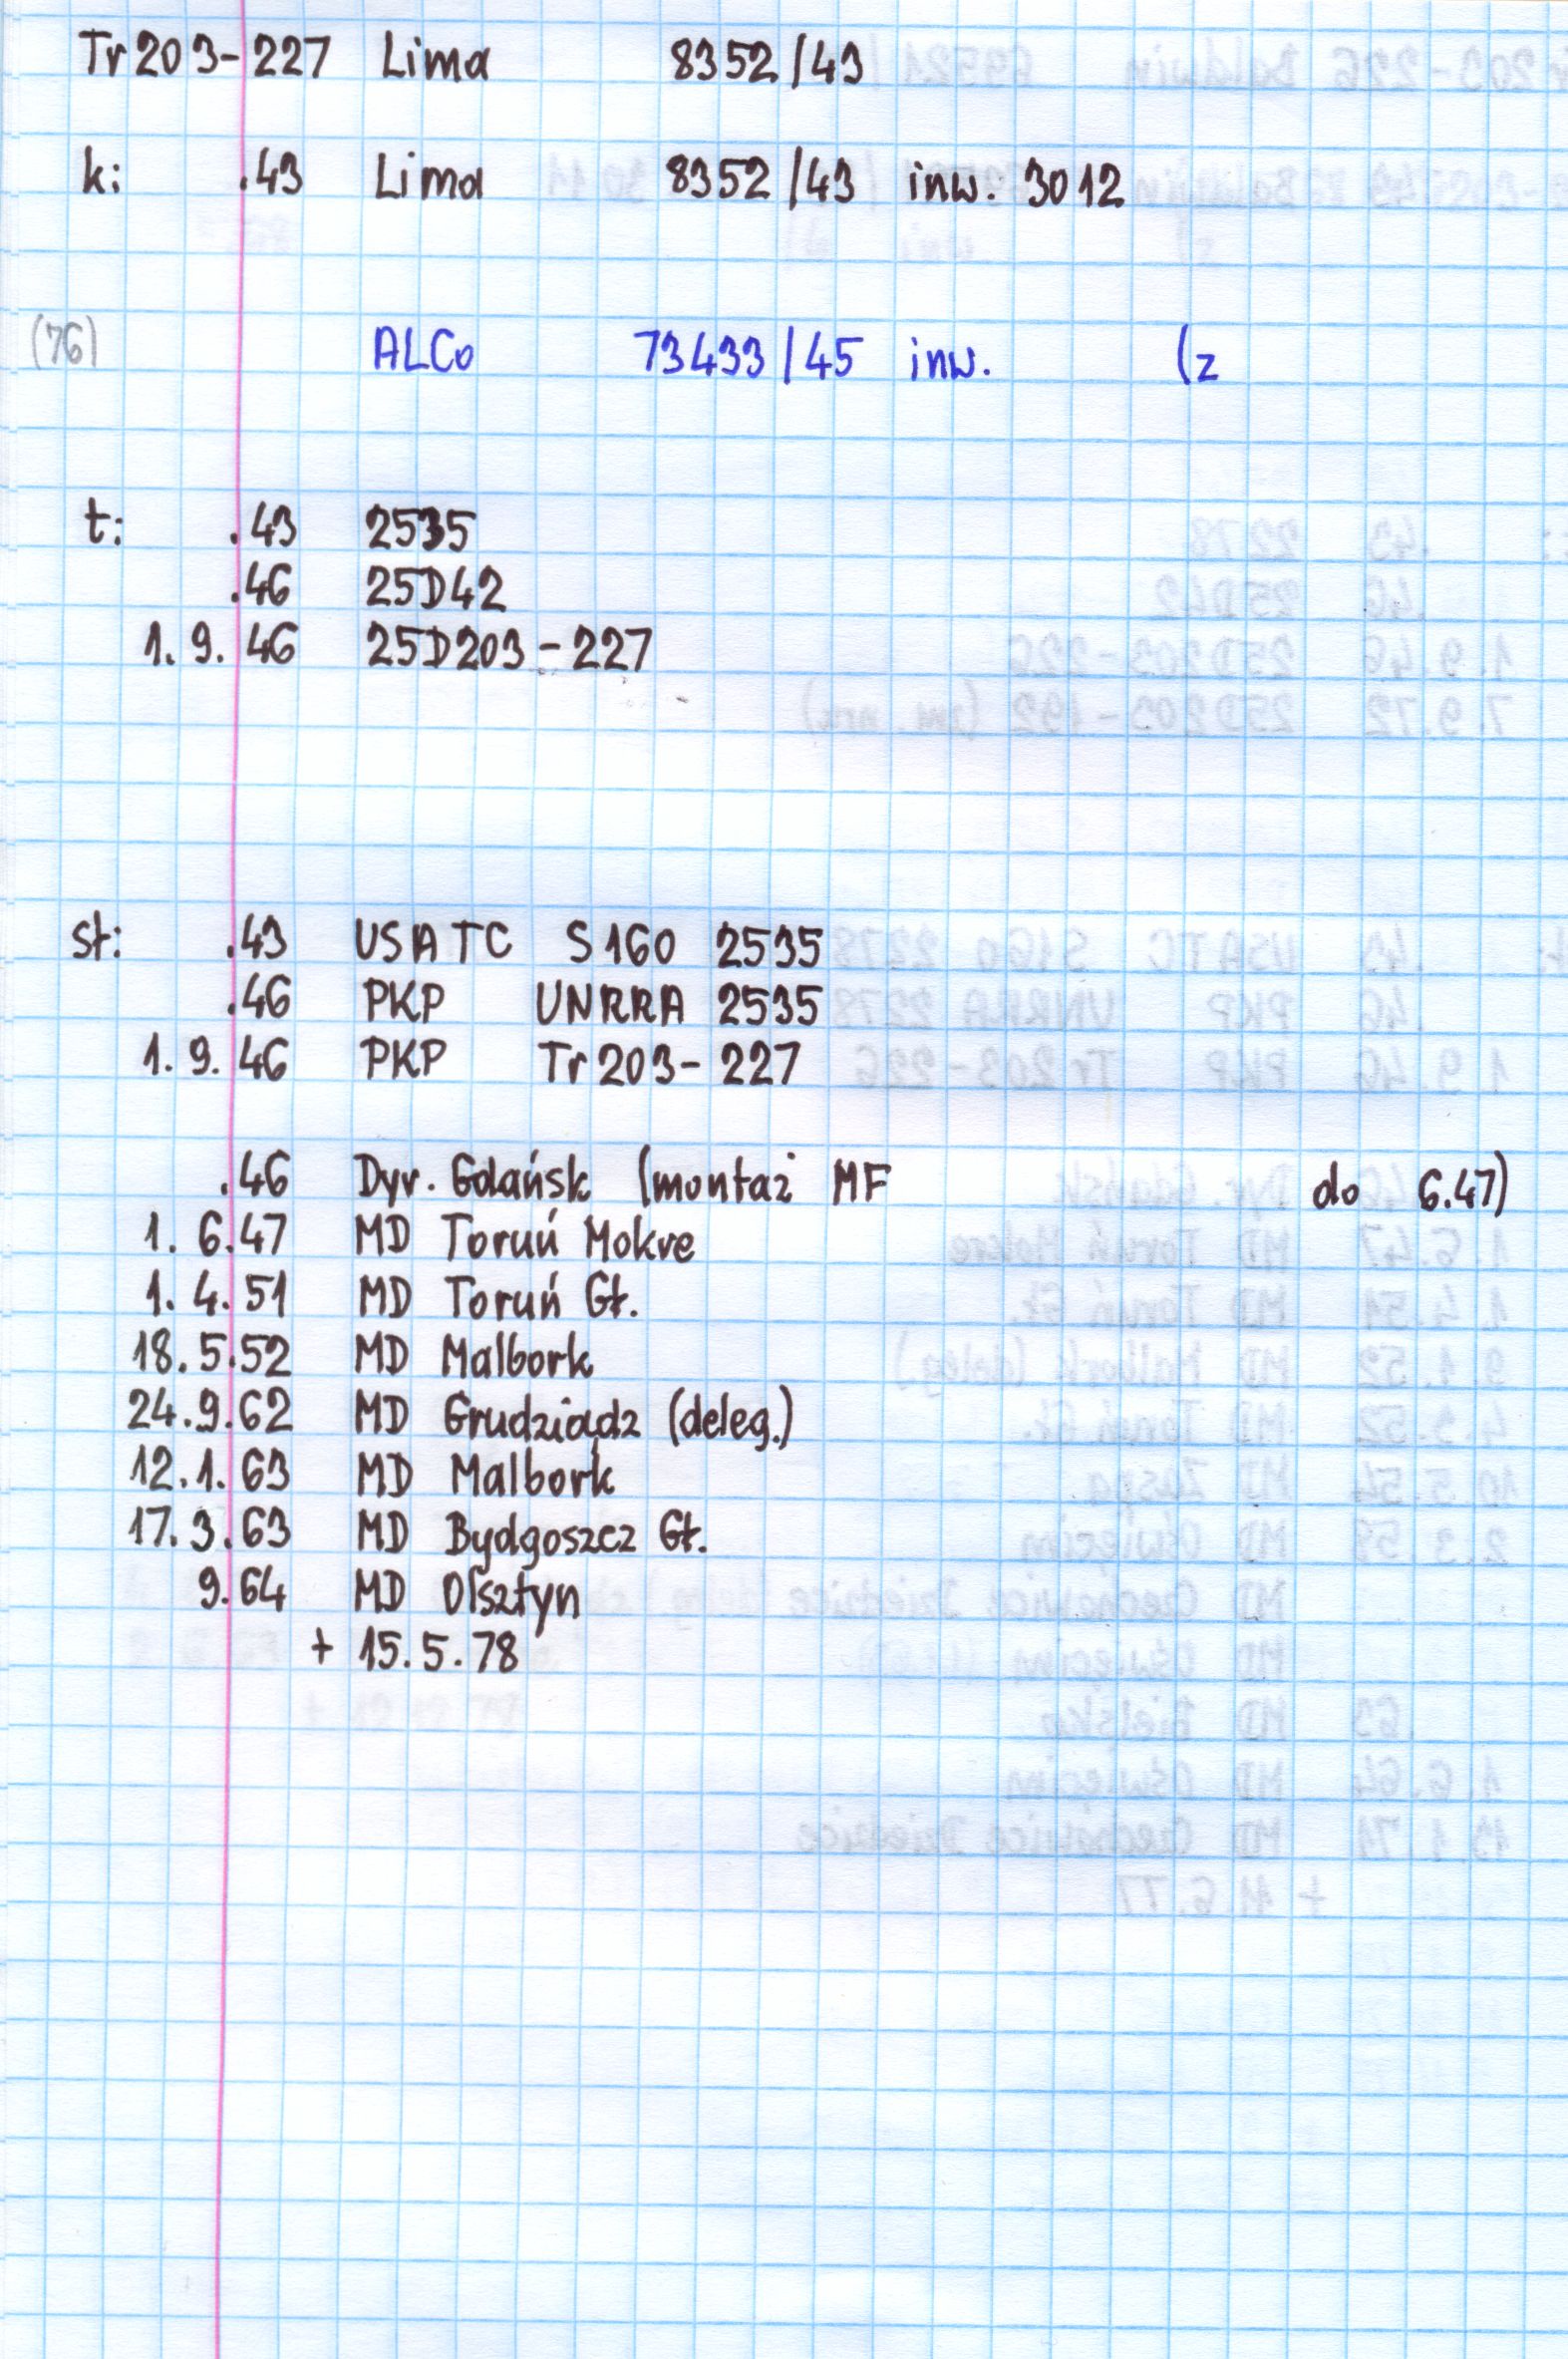 Tr203-227 Lima 8352/43
k: .43 Lima 8352/43 inw. 3012
(76) ALCo 73433/45 inw. (z
t: .43 2535
.46 25D42
1.9.46 25D203-227
st: .43 USATC S160 2535
.46 PKP UNRRA 2535
1.9.46 PKP Tr203-227
.46 Dyr. Gdańsk (montaż MF do 6.47)
1.6.47 MD Toruń Mokre
1.4.51 MD Toruń Gł.
18.5.52 MD Malbork
24.9.62 MD Grudziądz (deleg.)
12.1.63 MD Malbork
17.3.63 MD Bydgoszcz Gł.
9.64 MD Olsztyn
+ 15.5.78